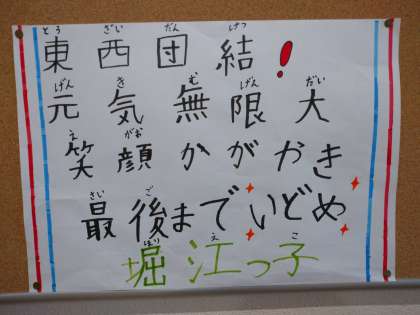 とう ざい だん けつ
東西団結!
げん き む げん だい
元気無限大
え がお
笑顔かがやき
さい ご
最後までいどめ
ほり え こ
堀江っ子